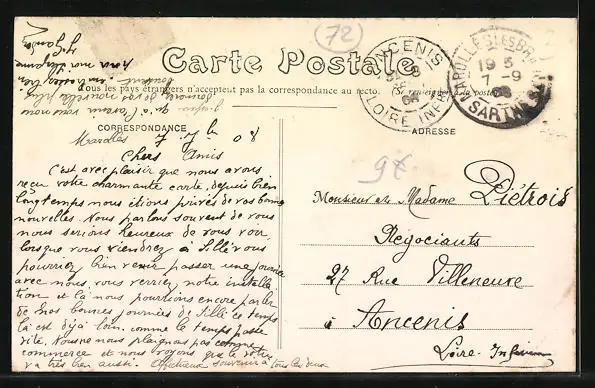 72
Carte Postale
Tous les pays étrangers n'acceptent pas la correspondance au recto. (Se renseigner à la poste)
ANCENIS
LOIRE INFRE
MAROLLES-LES-BRAULTS
19 5
7 -9
08
SARTHE
CORRESPONDANCE
ADRESSE
Marolles 7. 7bre 08
Chers Amis
C'est avec plaisir que nous avons
reçu votre charmante carte, depuis bien
longtemps nous étions privés de vos bonnes
nouvelles. Nous parlons souvent de vous
nous serions heureux de vous voir
lorsque vous viendrez à Sillé vous
pourriez bien venir passer une journée
avec nous vous verriez notre installa
tion et là nous pourrions encore parler
de nos bonnes journées de Sillé ce temps
là est déjà loin, comme le temps passe
vite. Nous ne nous plaignons pas comme
commerce et nous voyons que le votre
va très bien aussi. Affectueux souvenir à tous les deux
Monsieur et Madame Piétrois
Négociants
27 Rue Villeneuve
à Ancenis
Loire-Inférieure